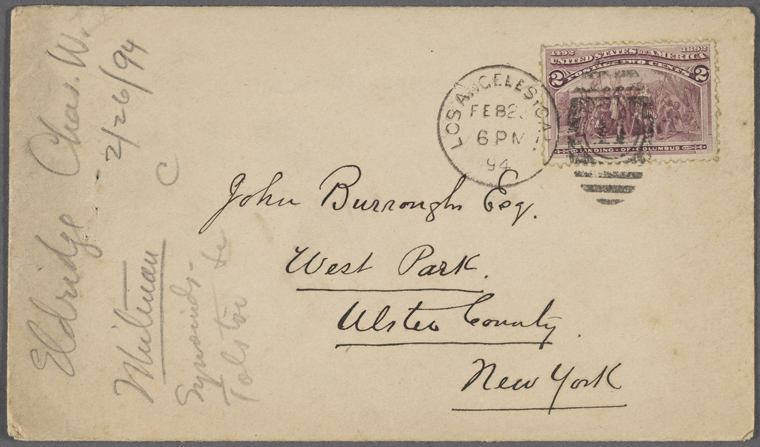 1492 1892
UNITED STATES OF AMERICA
POSTAGE TWO CENTS
2 2
LANDING OF COLUMBUS
LOS ANGELES, CAL.
FEB 2
6 PM
94
John Burroughs Esq.
West Park.
Ulster County.
New York
Eldridge Chas. W.
2/26/94
C
Whitman
Symonds-
Tolstoi